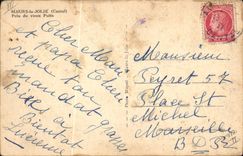 MAURS-la-JOLIE (Cantal)
Près du vieux Puits
Cher Mémé
et papa Chéri
reçu ton
mandat
Bises à
Bientôt
Lucienne
Monsieur
Peyret 57
Place St
Michel
Marseille
B.D.R